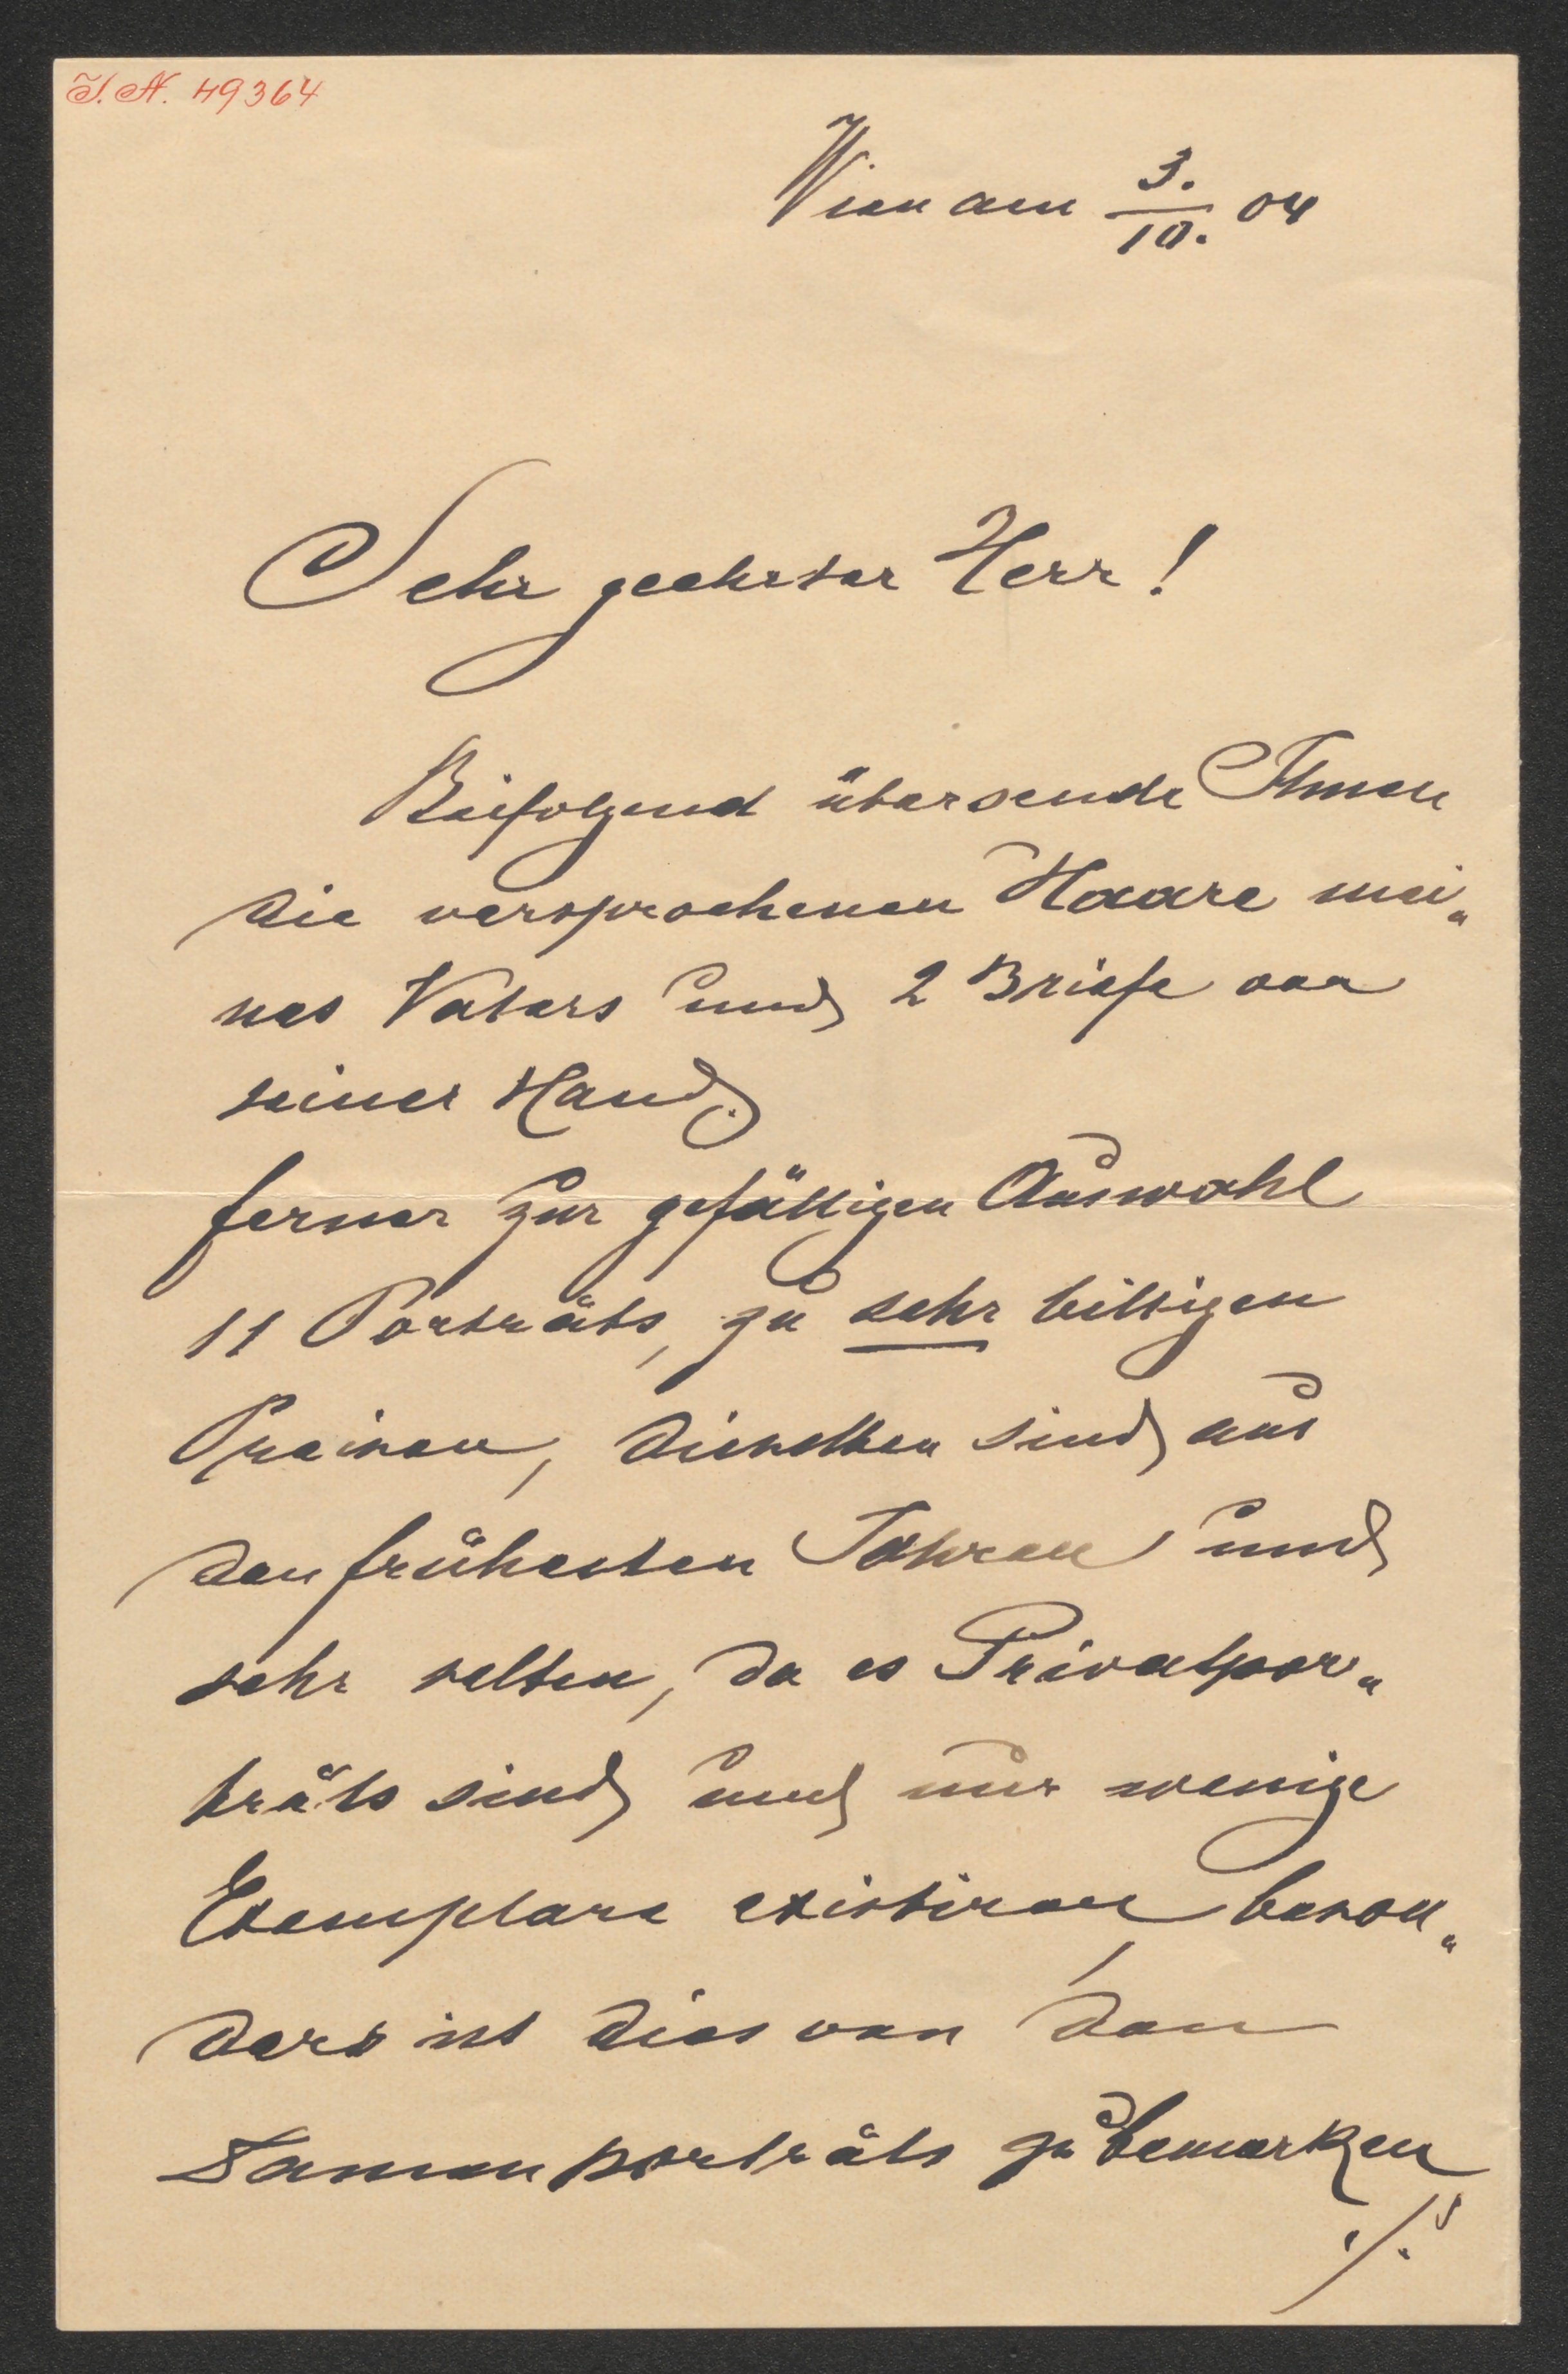 I. N. 49364
Wien am 3./10. 04
Sehr geehrter Herr!
Beifolgend übersende Ihnen
die versprochenen Haare mei„
nes Vaters und 2 Briefe von
seiner Hand.
ferner zur gefälligen Auswahl
11 Porträts, zu sehr billigen
Preisen, dieselben sind aus
den frühesten Jahren und
sehr selten, da es Privatpor„
träts sind und nur wenige
Exemplare existiren, beson„
ders ist dies von den
Damenporträts zu bemerken
./.